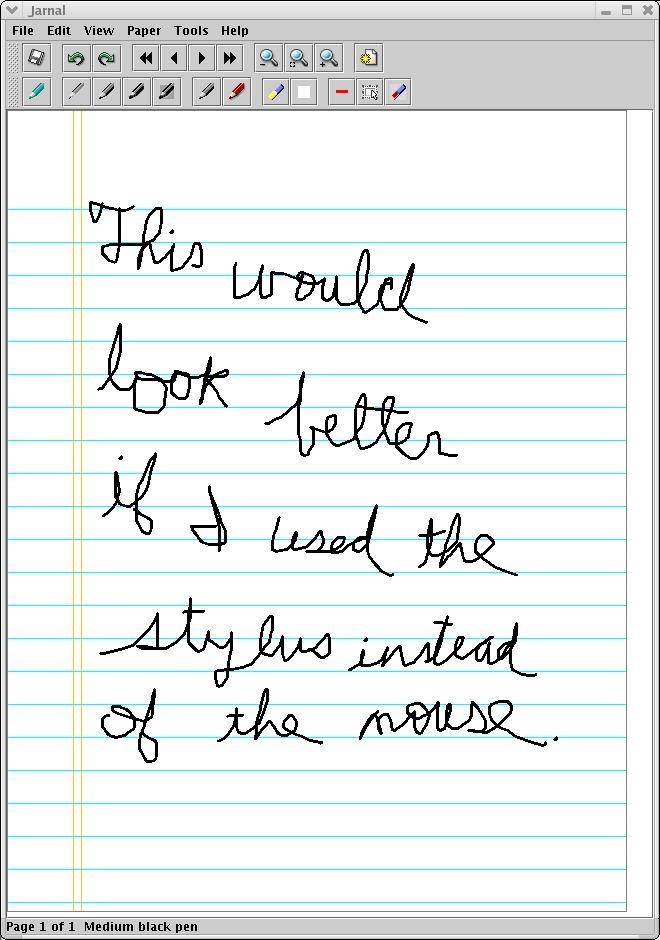 Jarnal
File Edit View Paper Tools Help
This would
look better
if I used the
stylus instead
of the mouse.
Page 1 of 1 Medium black pen